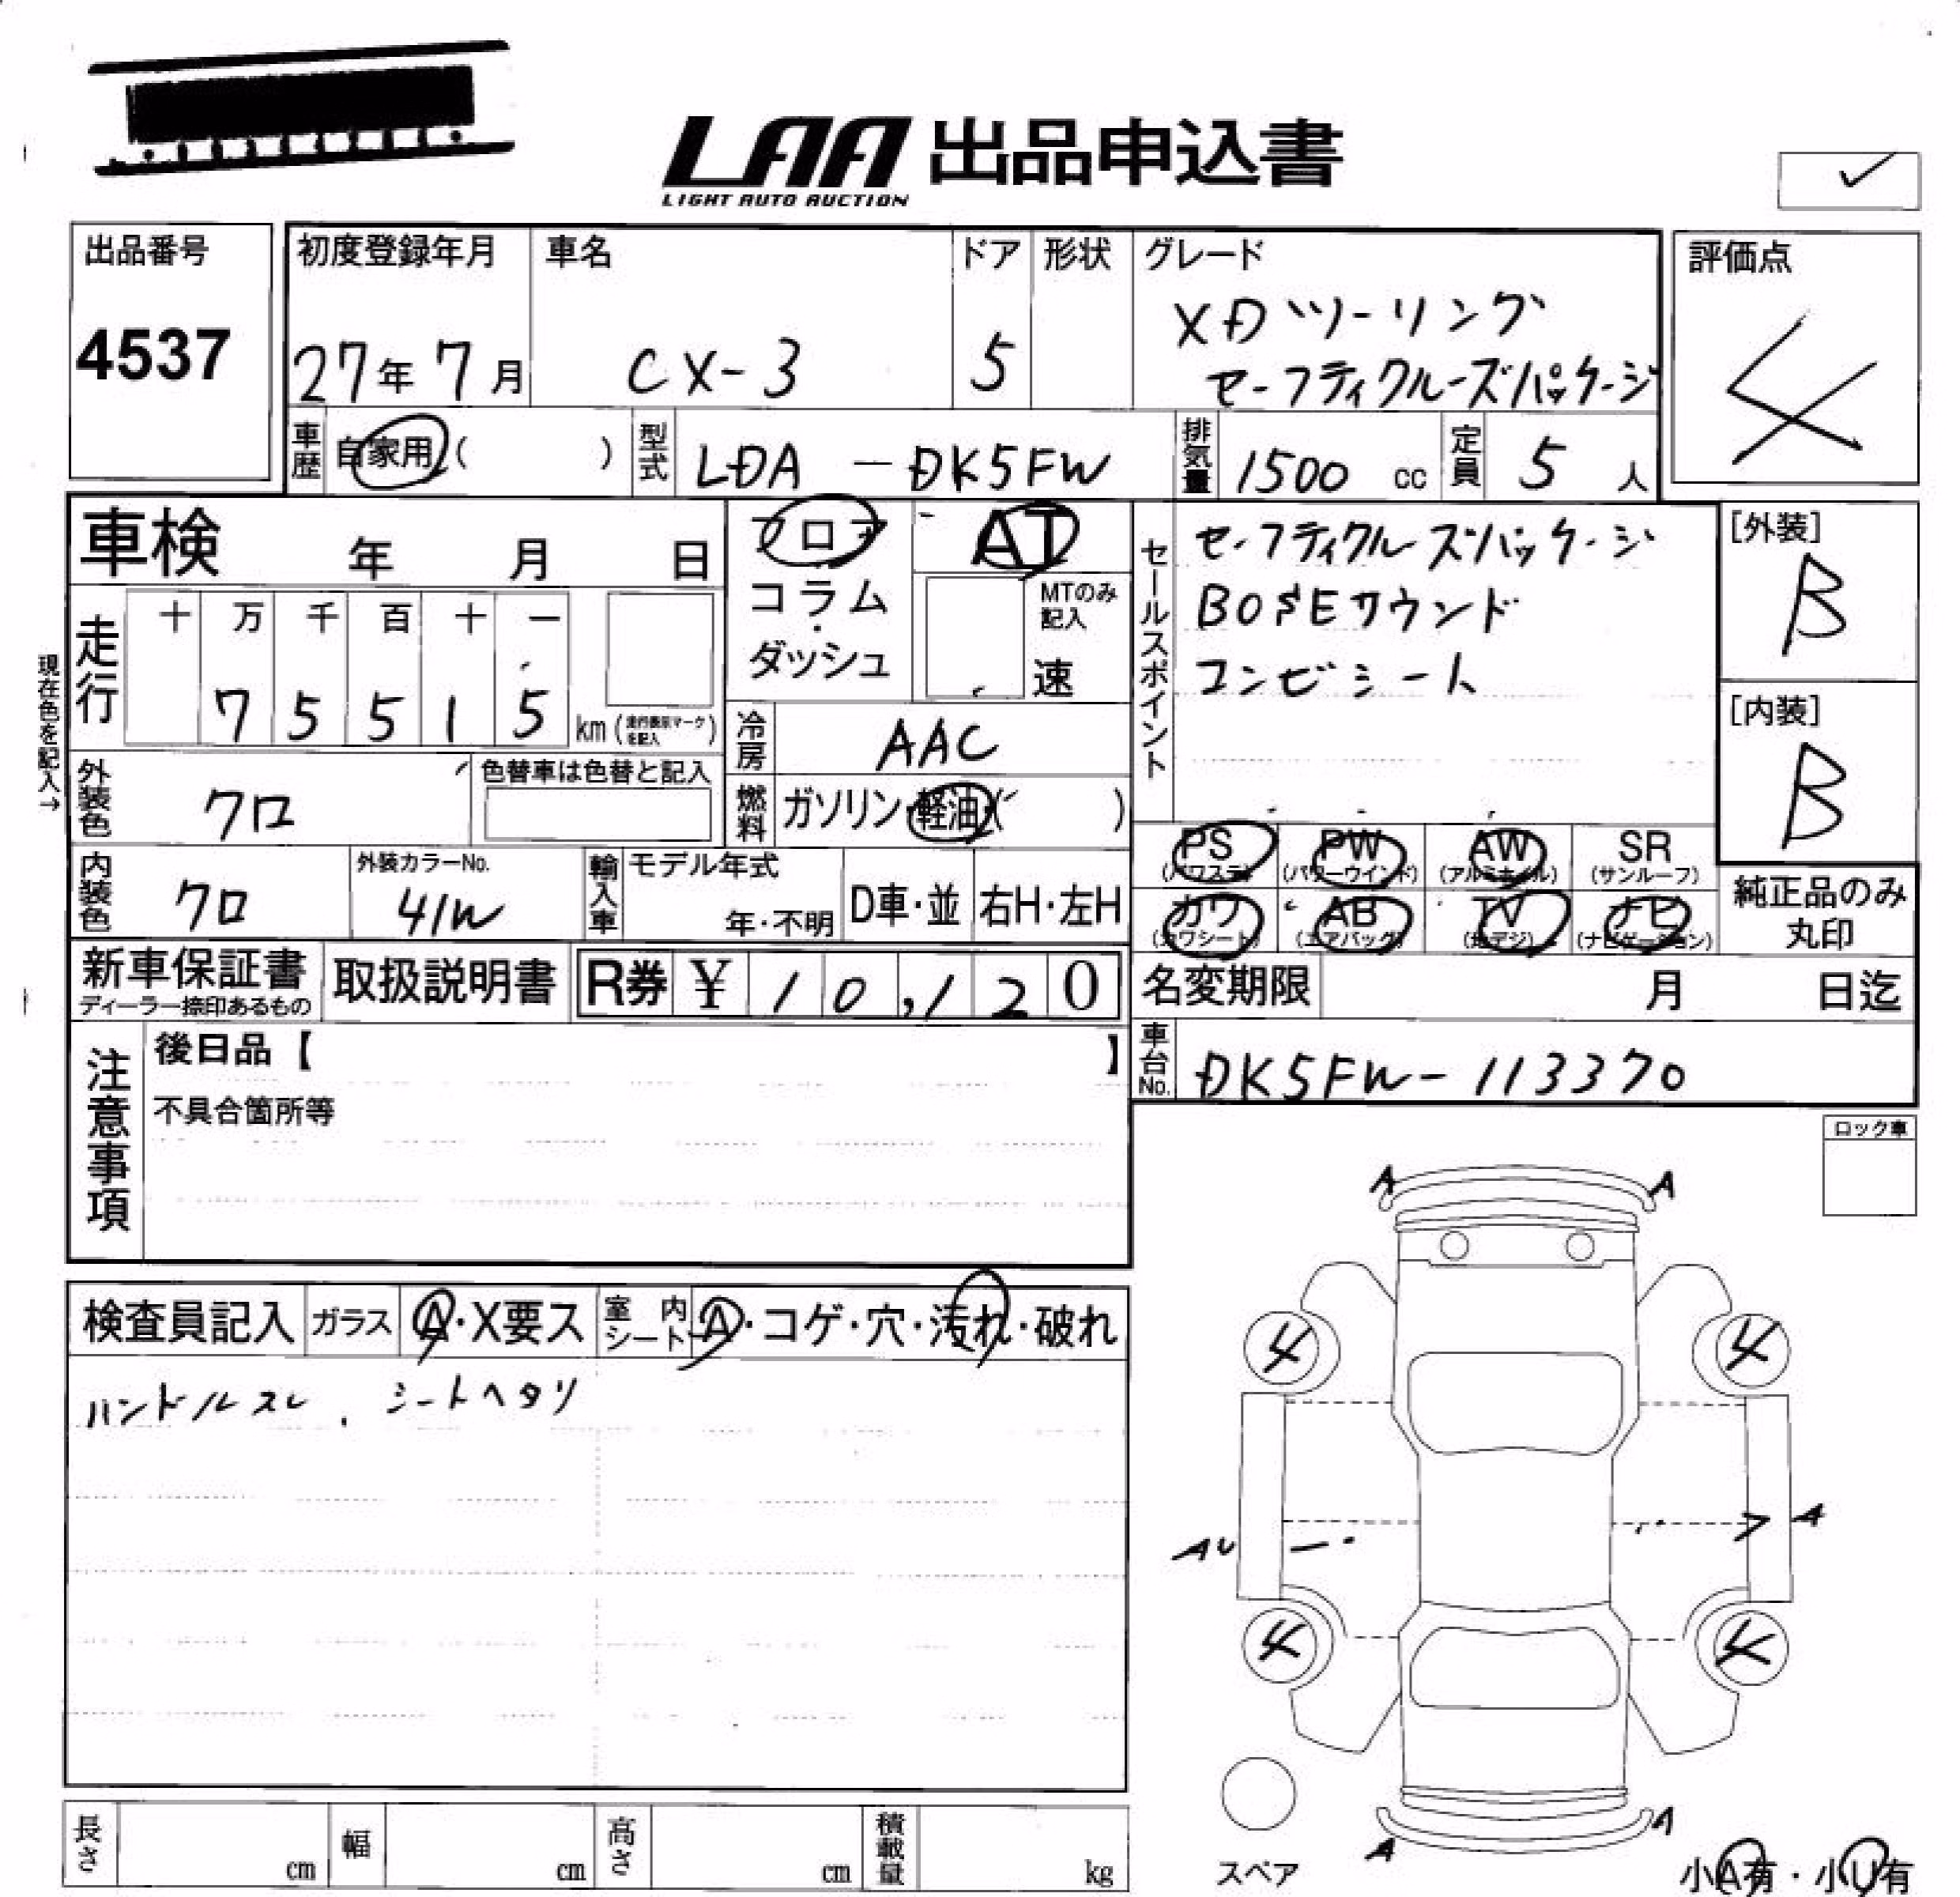 LAA 出品申込書
LIGHT AUTO AUCTION
出品番号
4537
初度登録年月
27年 7月
車名
CX-3
ドア
5
形状
グレード
XDツーリング
セーフティクルーズパッケージ
評価点
4
車歴
自家用( )
型式
LDA - DK5FW
排気量
1500 cc
定員
5 人
車検 年 月 日
フロア
コラム・ダッシュ
AT
MTのみ記入
速
セールスポイント
セーフティクルーズパッケージ
BOSEサウンド
コンビシート
[外装]
B
[内装]
B
現在色を記入→
走行
十 万 千 百 十 一
7 5 5 1 5
km(走行表示マークを記入)
冷房
AAC
外装色
クロ
色替車は色替と記入
燃料
ガソリン・軽油・( )
内装色
クロ
外装カラーNo.
41W
輸入車
モデル年式
年・不明
D車・並
右H・左H
PS (パワステ)
PW (パワーウインド)
AW (アルミホイル)
SR (サンルーフ)
カワ (カワシート)
AB (エアバッグ)
TV (地デジ)
ナビ (ナビゲーション)
純正品のみ
丸印
新車保証書
ディーラー捺印あるもの
取扱説明書
R券 ¥ 10,120
名変期限 月 日迄
車台No.
DK5FW-113370
注意事項
後日品【 】
不具合箇所等
ロック車
検査員記入
ガラス
A・X要ス
室内シート
A・コゲ・穴・汚れ・破れ
ハンドルスレ、シートヘタリ
A A
4 4
AU A
4 4
A A
スペア
小A有・小U有
長さ cm
幅 cm
高さ cm
積載量 kg